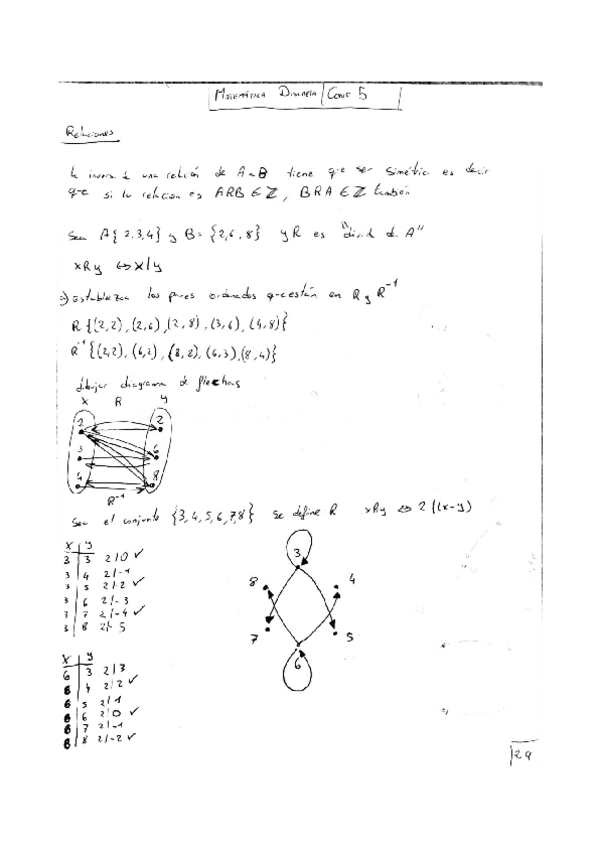 Matemática Discreta | Clase 5
Relaciones
la inversa de una relación de A en B tiene que ser simétrica es decir
que si la relacion es ARB ∈ ℤ, BRA ∈ ℤ también
Sea A{2,3,4} y B = {2,6,8} y R es "divid de A"
xRy ⇔ x|y
Establezca los pares ordenados que están en R y R⁻¹
R{(2,2),(2,6),(2,8),(3,6),(4,8)}
R⁻¹{(2,2),(6,2),(8,2),(6,3),(8,4)}
dibujar diagrama de flechas
X R Y
2 2
3 6
4 8
R⁻¹
Sea el conjunto {3,4,5,6,7,8} se define R xRy ⇔ 2|(x-y)
X Y
3 3 2/0 ✓
3 4 2/-1
3 5 2/-2 ✓
3 6 2/-3
3 7 2/-4 ✓
3 8 2/-5
3
8 4
7 5
6
X Y
6 3 2/3
6 4 2/2 ✓
6 5 2/1
6 6 2/0 ✓
6 7 2/-1
6 8 2/-2 ✓